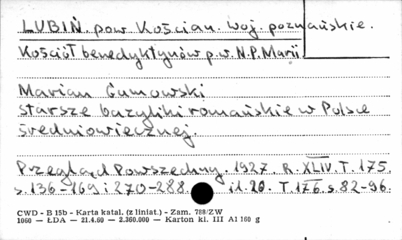 LUBIŃ. pow. Kościan. woj. poznańskie.
Kościół benedyktynów p.w. N.P. Marii.
Marian Gumowski
Starsze bazyliki romańskie w Polsce
średniowiecznej.
Przegląd Powszechny. 1927. R. XLIV. T. 175.
s. 136-169 i 270-288. il. 20. T. 176. s. 82-96.
CWD - B 15b - Karta katal. (z liniat.) - Zam. 788/ZW
1060 - ŁDA - 21.4.60 - 2.360.000 - Karton kl. III A1 160 g